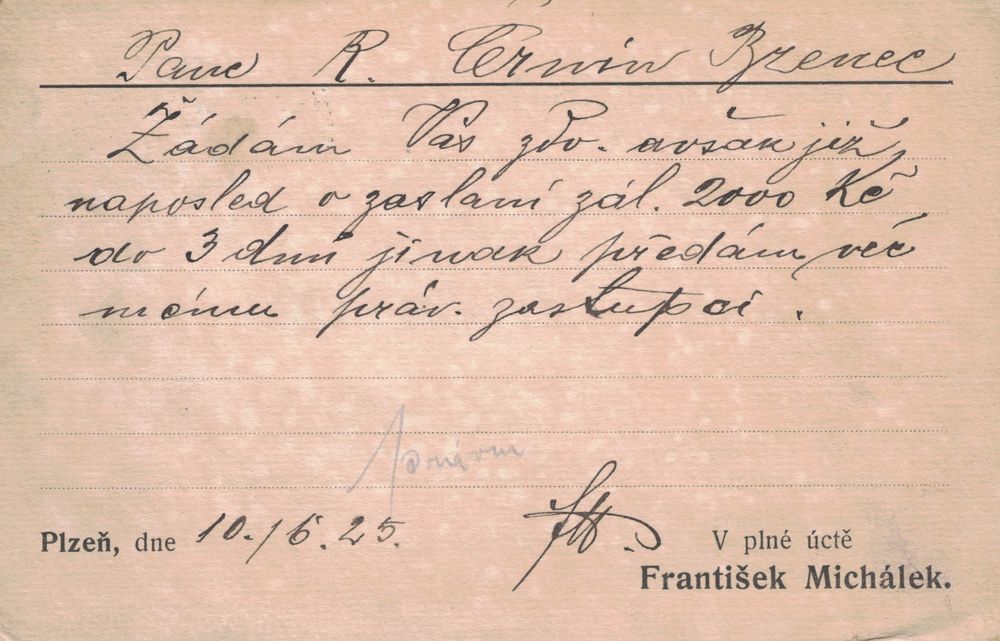 Pane R. Červín Brenec
Žádám Vás zdv. avšak již
naposled o zaslaní zál. 2000 Kč
do 3 dnů jinak předám věc
mému práv. zastupci.
Plzeň, dne 10./6.25.
V plné úctě
František Michálek.